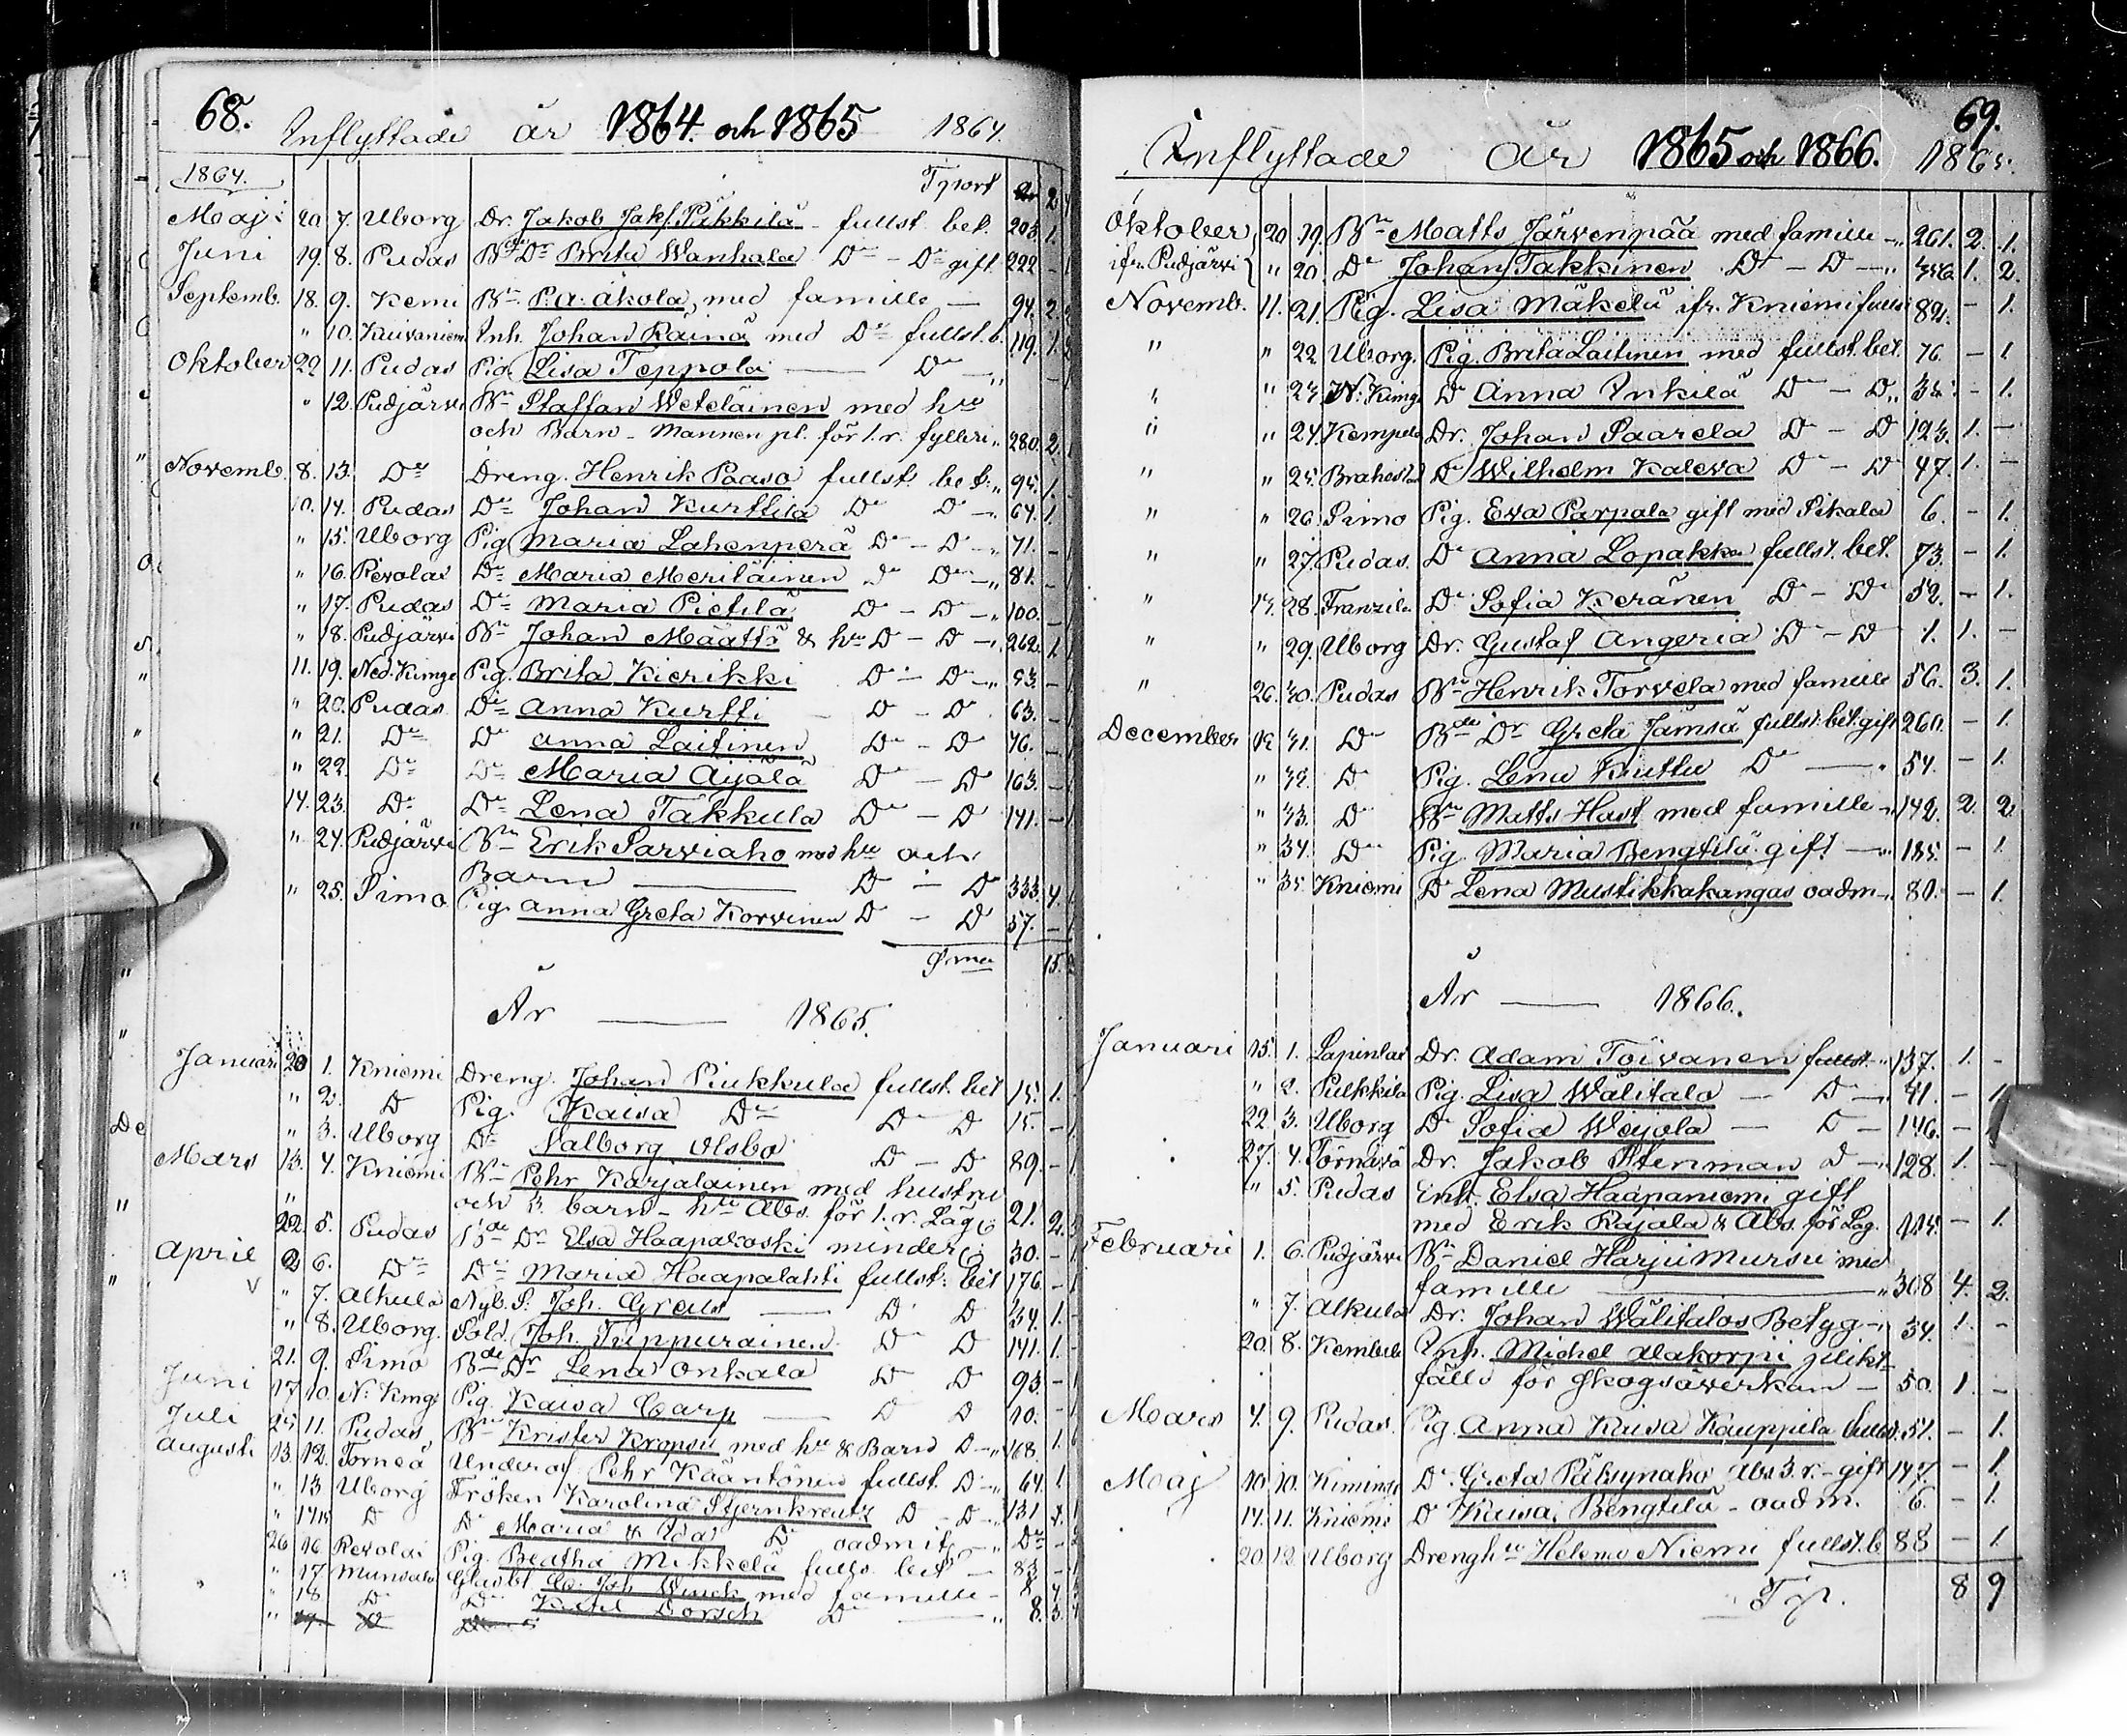 68.
Inflyttade år 1864. och 1865 1864.
1864.
Maji 20. 7. Uborg Dr. Jakob Jakf. Pikkilä - fullst. bet. 203. 1.
Juni 19. 8. Pudas Bde Dr Brita Wanhala Do - Do gift 222 -
Septemb. 18. 9. Kemi Bn P. A. Akola, med famille - 94. 2.
" 10. Kuivaniem Inh. Johan Rainä med Do fullst. b. 119. 1.
Oktober 22 11. Pudas Pig. Lisa Teppola Do -
" 12. Pudjärvi Bn Staffan Wetelainen med hru
och Barn - Mannen pl. för 1. r. fylleri " 280. 2.
Novemb. 8. 13. Do Dreng. Henrik Paaso fullst. bet. " 95. 1.
10. 14. Pudas Do Johan Kurttila Do Do - 64. 1.
" 15. Uborg Pig. Maria Lahenperä Do - Do - 71. -
" 16. Revolax Do Maria Meriläinen Do Do - 81. -
" 17. Pudas Do Maria Pietilä Do - Do - 100. -
" 18. Pudjärvi Bn Johan Määttä & hru Do - Do - 262. 1.
11. 19. Ned. Kimge Pig. Brita Kierikki Do - Do - 53. -
" 20. Pudas Do Anna Kurtti Do - Do 63. -
" 21. Do Do Anna Laitinen Do - Do 76. -
" 22. Do Do Maria Ayälä Do - Do 163. -
14. 23. Do Do Lena Takkula Do - Do 141. -
" 24. Pudjärvi Bn Erik Sarviaho med hru och
Barn Do - Do 333. 4.
" 25. Simo Pig. Anna Greta Korvinen Do - Do 57. -
15.
År — 1865.
Januari 20 1. Kniemi Dreng. Johan Piukkula fullst. bet 15. 1.
" 2. Do Pig. Kaisa Do Do Do 15. -
" 3. Uborg Do Valborg Olsbo Do - Do 89. -
Mars 13. 4. Kniemi Bn Pehr Karjalainen med hustru
" och 3. barn - hru Abs. för 1. r. Läg 21. 2.
22. 5. Pudas Bde Dr Elsa Haapakoski minder 30. -
April 2 6. Do Do Maria Haapalahti fullst. bet 176. -
" 7. Alkula Nyb. S. Joh. Graus Do Do 34. 1. -
" 8. Uborg. Sold. Joh. Tuppurainen Do Do 141. 1. -
21. 9. Simo Bde Dr Lena Onkala Do Do 93. -
Juni 17. 10. N. Kimg Pig. Kaisa Carp Do Do 10. -
Juli 25 11. Pudas Bn Krister Kropsu med hru & Barn Do - 168. 1.
Augusti 13. 12. Torneå Underof Pehr Kääntönen fullst. Do - 64 1.
" 13 Uborg Fröken Karolina Stjernkreutz Do - Do - 131
" 14 15 Do Do Maria & Ida Do oadmit - Do -
26 16 Revolax Pig. Beatha Mikkelä fulls bet - 83 -
" 17 Munsala Glasbl. C. Joh. med famille - 8.
" 18 Do Do Karl Dorsch Do " 8. 3.
69.
Inflyttade år 1865 och 1866. 1865.
Oktober 20 19. Bn Matts Järvenpää med famille - " 261. 2. 1.
ifr. Pudjärvi " 20 Do Johan Takkinen Do - Do - 356. 1. 2.
Novemb. 11. 21. Pig. Lisa Mäkelä ifr. Kniemi fulls 82. - 1.
" " 22 Uborg. Pig. Brita Laitinen med fullst. bet. 76. - 1.
" " 23. N. Kimg Do Anna Inkilä Do - Do " 35 - 1.
" " 24. Kempele Dr. Johan Saarela Do - Do 123. 1. -
" " 25. Brahestad Do Wilhelm Kaleva Do - Do 47. 1. -
" " 26. Simo Pig. Eva Parpala gift med Pikala 6. - 1.
" " 27. Pudas. Do Anna Lopakka fullst. bet. 73. - 1.
" 14. 28. Franzila Do Sofia Keränen Do - Do 52. - 1.
" " 29. Uborg Dr. Gustaf Angeria Do - Do 1. 1. -
" 26. 30. Pudas Bn Henrik Torvela med famille 56. 3. 1.
December 12 31. Do Bde Dr Greta Jämsä fullst. bet. gift 260. - 1.
" 32. Do Pig. Lena Knuttu Do — 54. - 1.
" 33. Do Bn Matts Hast med famille - 142. 2. 2.
" 34. Do Pig. Maria Bengtilä gift — 185. - 1.
" 35 Kniemi Do Lena Mustikkakangas oadm - 80. - 1.
År — 1866.
Januari 15. 1. Lapinlax Dr. Adam Toivanen fullst. " 137. 1. -
" 2. Pulkkila Pig. Lisa Wälitalo — Do - 41. - 1
22. 3. Uborg Do Sofia Weijola — Do - 146. -
27. 4. Törnävä Dr. Jakob Stenman Do - 128. 1. -
" 5. Pudas Enk. Elsa Haapaniemi gift
med Erik Rajala & Abs. för Läg. 115. - 1.
Februari 1. 6. Pudjärvi Bn Daniel Harju Mursu med
famille " 308 4. 2.
" 7. Alkula Dr. Johan Wälitalos Betyg - 34. 1. -
20. 8. Kembele Inh. Michel Alakorpi plikt-
fälld för skogsåverkan - 50. 1. -
Mars 4. 9. Pudas. Pig. Anna Kaisa Kauppila fullst. 51. - 1.
Maj 10. 10. Kiminge Do Greta Pätsynaho Abs 3. r. - gift 147. - 1.
14. 11. Kniemi Do Kaisa Bengtilä - oadm. 6. - 1.
20 12. Uborg Drenghu Helena Niemi fullst. b 88 - 1.
8 9